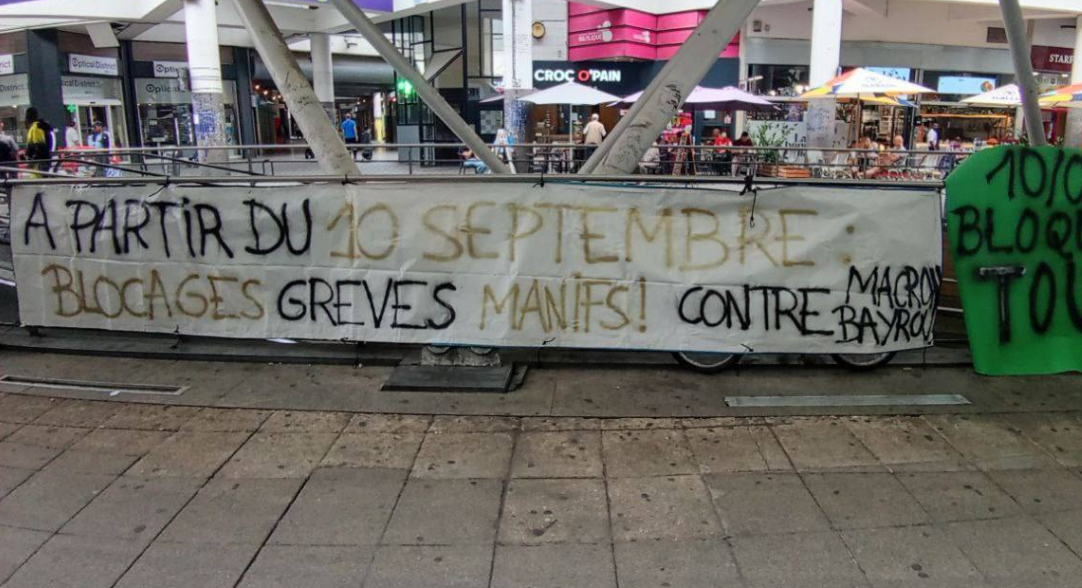 Optical District
Optical District
CROC O'PAIN
A PARTIR DU 10 SEPTEMBRE :
BLOCAGES GREVES MANIFS! CONTRE MACRON
BAYROU
10/0
BLOQU
TOU